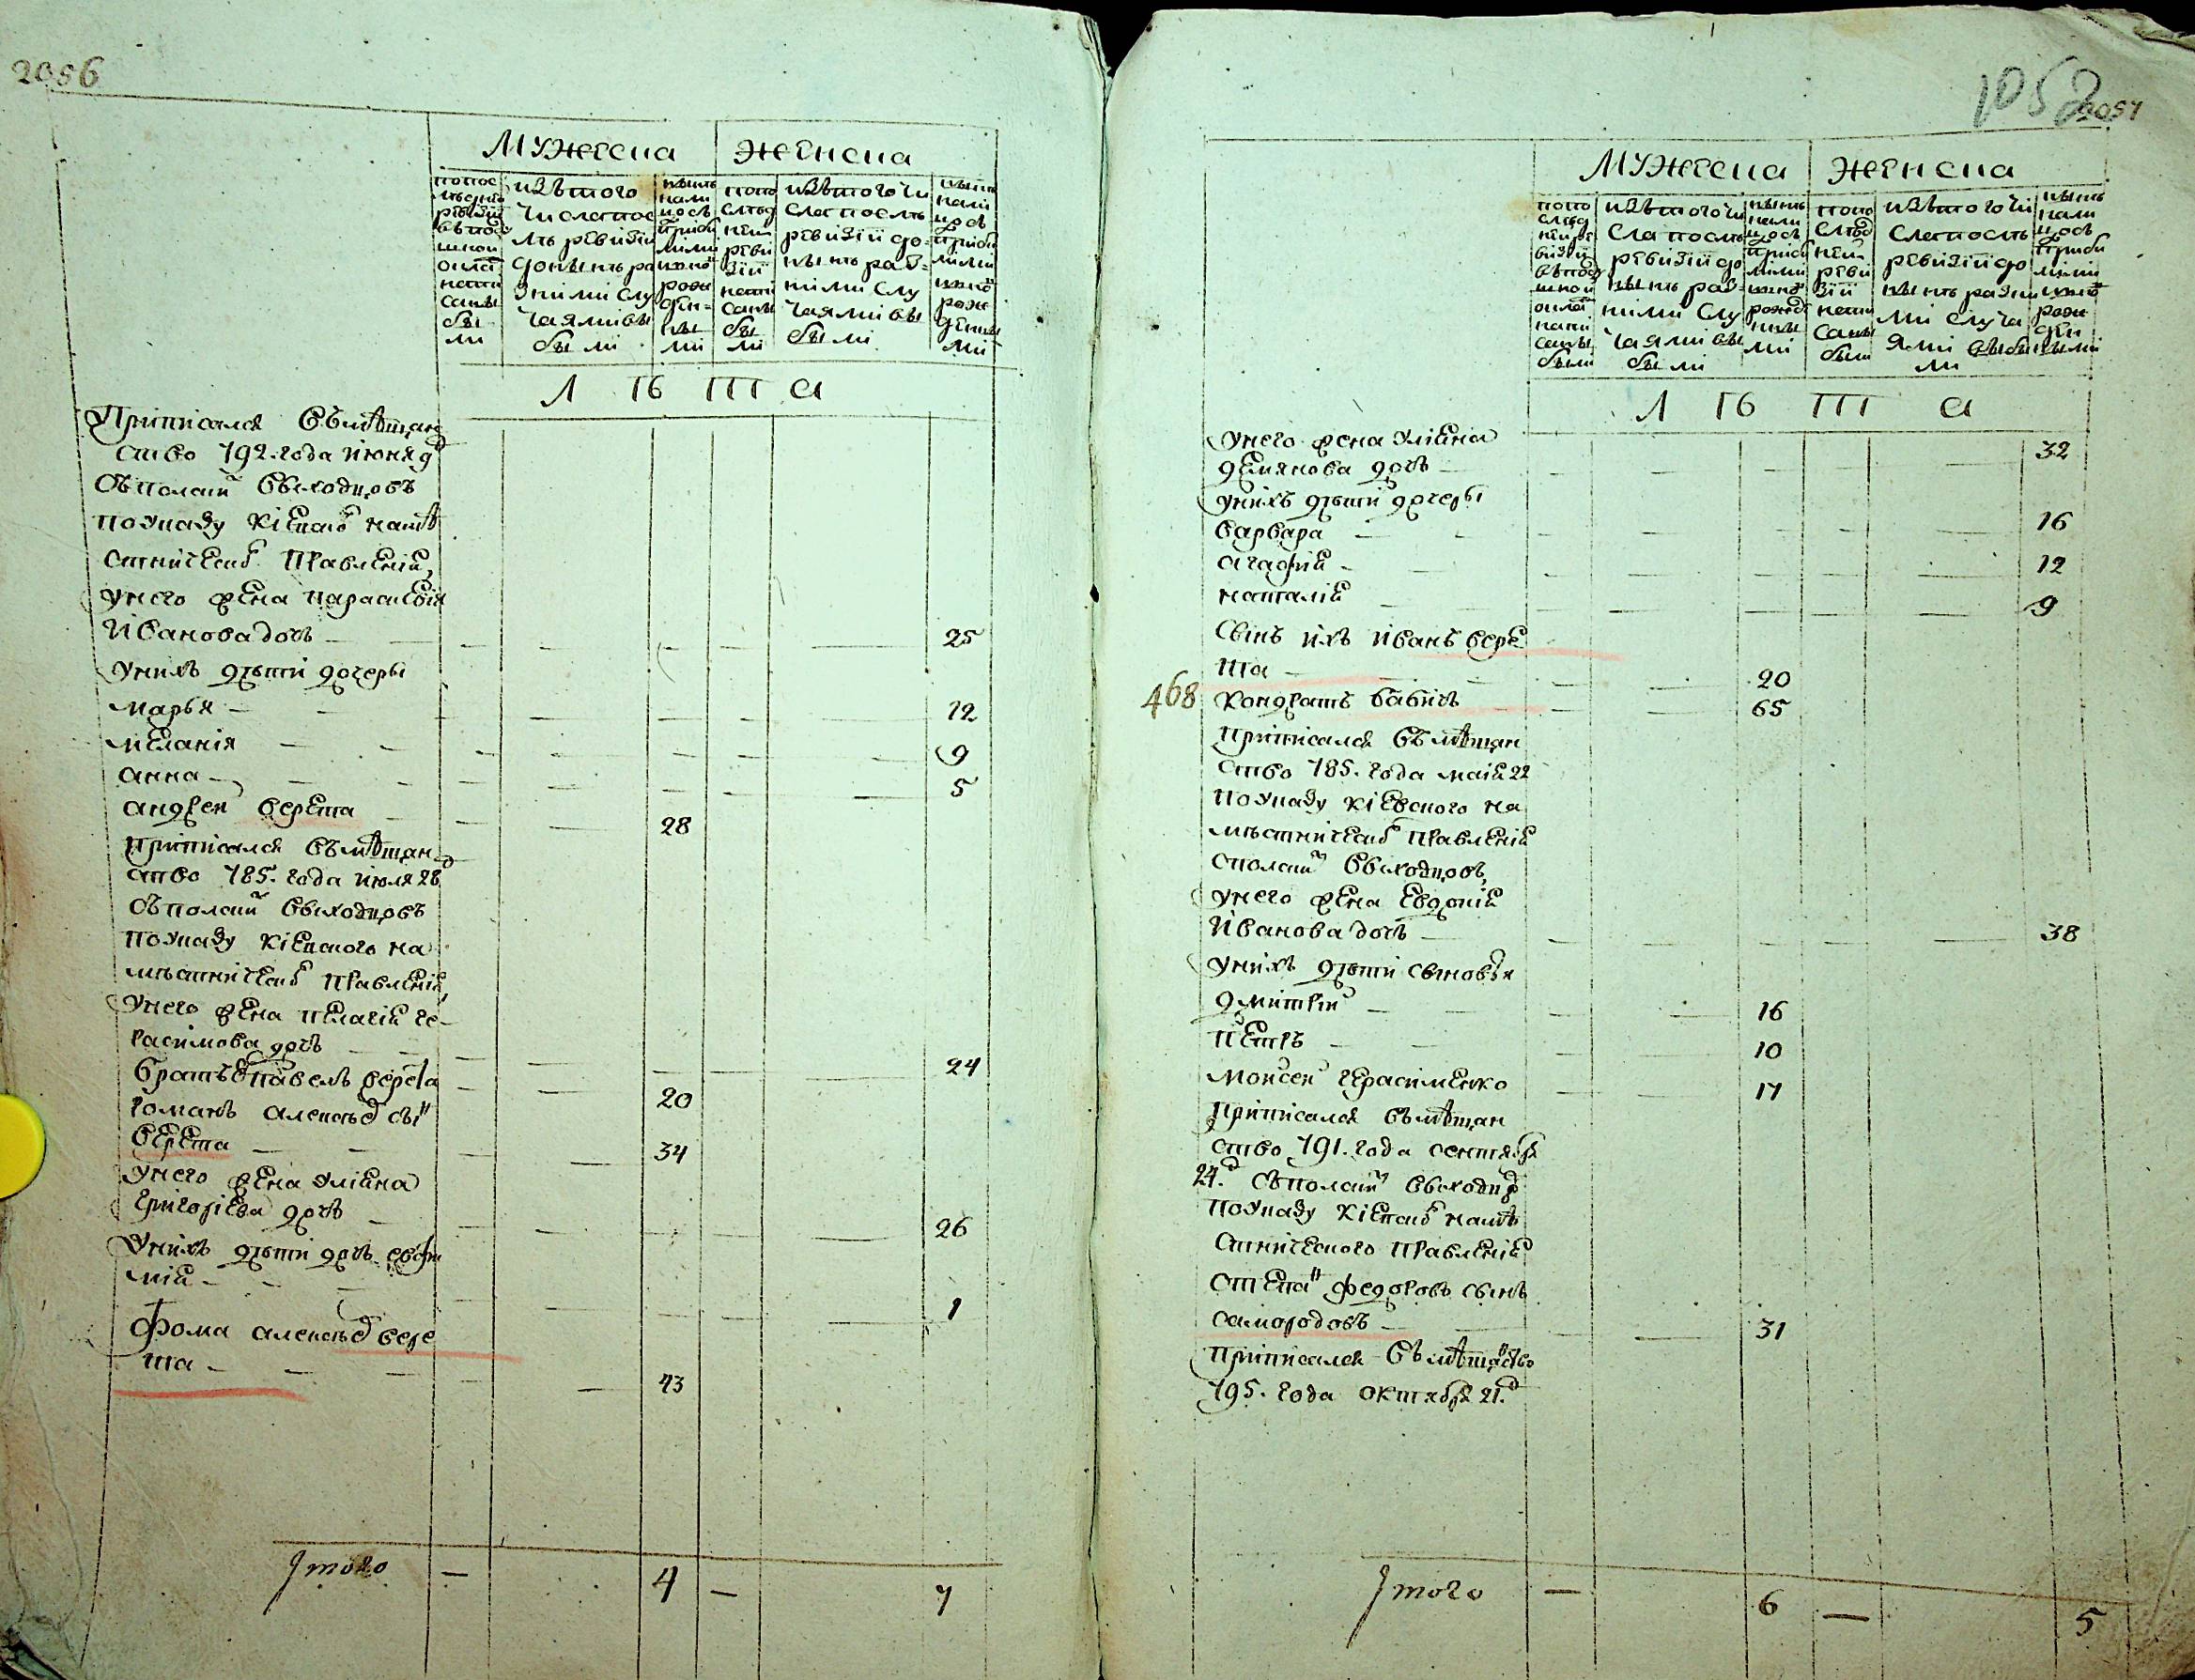 2056
Мужеска женска
по пос
лѣдней
ревизіи
въ по
шной
окла
напи
саны
бы
ли
изъ того
числа пос
лѣ ревизіи
до нынѣ ра
зними слу
чаями вы
были
нынѣ
на ли
цо съ
прибы
лими
рож
ден
ны
ми
по по
слѣд
ней
реви
зіи
напи
саны
бы
ли
изъ того чи
сла послѣ
ревизіи до
нынѣ раз
ними слу
чаями вы
были
нынѣ
на ли
цо съ
прибы
лими
рож
денны
ми
Лѣта
Приписался въ мѣщан
ство 792. года июня 9
съ полски выходцовъ
по указу кіевско намѣ
стническо правленія,
у него жена параскевія
Иванова дочь 25
у нихъ дѣти дочери
марья 12
меланія 9
анна 5
андрей верета 28
приписался въ мѣщан
ство 785. года июля 28
съ полски выходцовъ
по указу кіевского на
мѣстническ правленія,
у него жена пелагія ге
расимова дочь 24
братъ павелъ верета 20
романъ алексѣ сы
верета 34
у него жена уліяна
григоріева дочь 26
у нихъ дѣти дочь евфи
мія 1
фома алексѣ вере
та 43
Итого — 4 — 7
1052
2057
Мужеска женска
по по
слѣд
ней ре
визіи
въ по
шной
окла
напи
саны
были
изъ того чи
сла послѣ
ревизіи до
нынѣ раз
ними слу
чаями вы
были
нынѣ
на ли
цо съ
прибы
лими
рожд
ны
ми
по по
слѣд
ней
реви
зіи
напи
саны
были
изъ того чи
сла послѣ
ревизіи до
нынѣ разни
ми случа
ями выбы
ли
нынѣ
на ли
цо съ
прибы
лими
рож
ден
ными
Лѣта
у него жена уліяна
демянова дочь 32
у нихъ дѣти дочери
варвара 16
агафія 12
наталія 9
сынъ ихъ иванъ вере
та 20
468 кондратъ бабичъ 65
приписался въ мѣщан
ство 785. года маія 22
по указу кіевского на
мѣстническ правленія
с полски выходцовъ,
у него жена евдокія
Иванова дочь 38
у нихъ дѣти сыновья
дмитрій 16
петръ 10
мойсей герасименко 17
приписался въ мѣщан
ство 791. года сентября
24. съ полски выходцо
по указу кіевско намѣ
стнического правленія
степа федоровъ сынъ
самородовъ 31
приписался въ мѣщаство
795. года октября 21.
Итого — 6 — 5